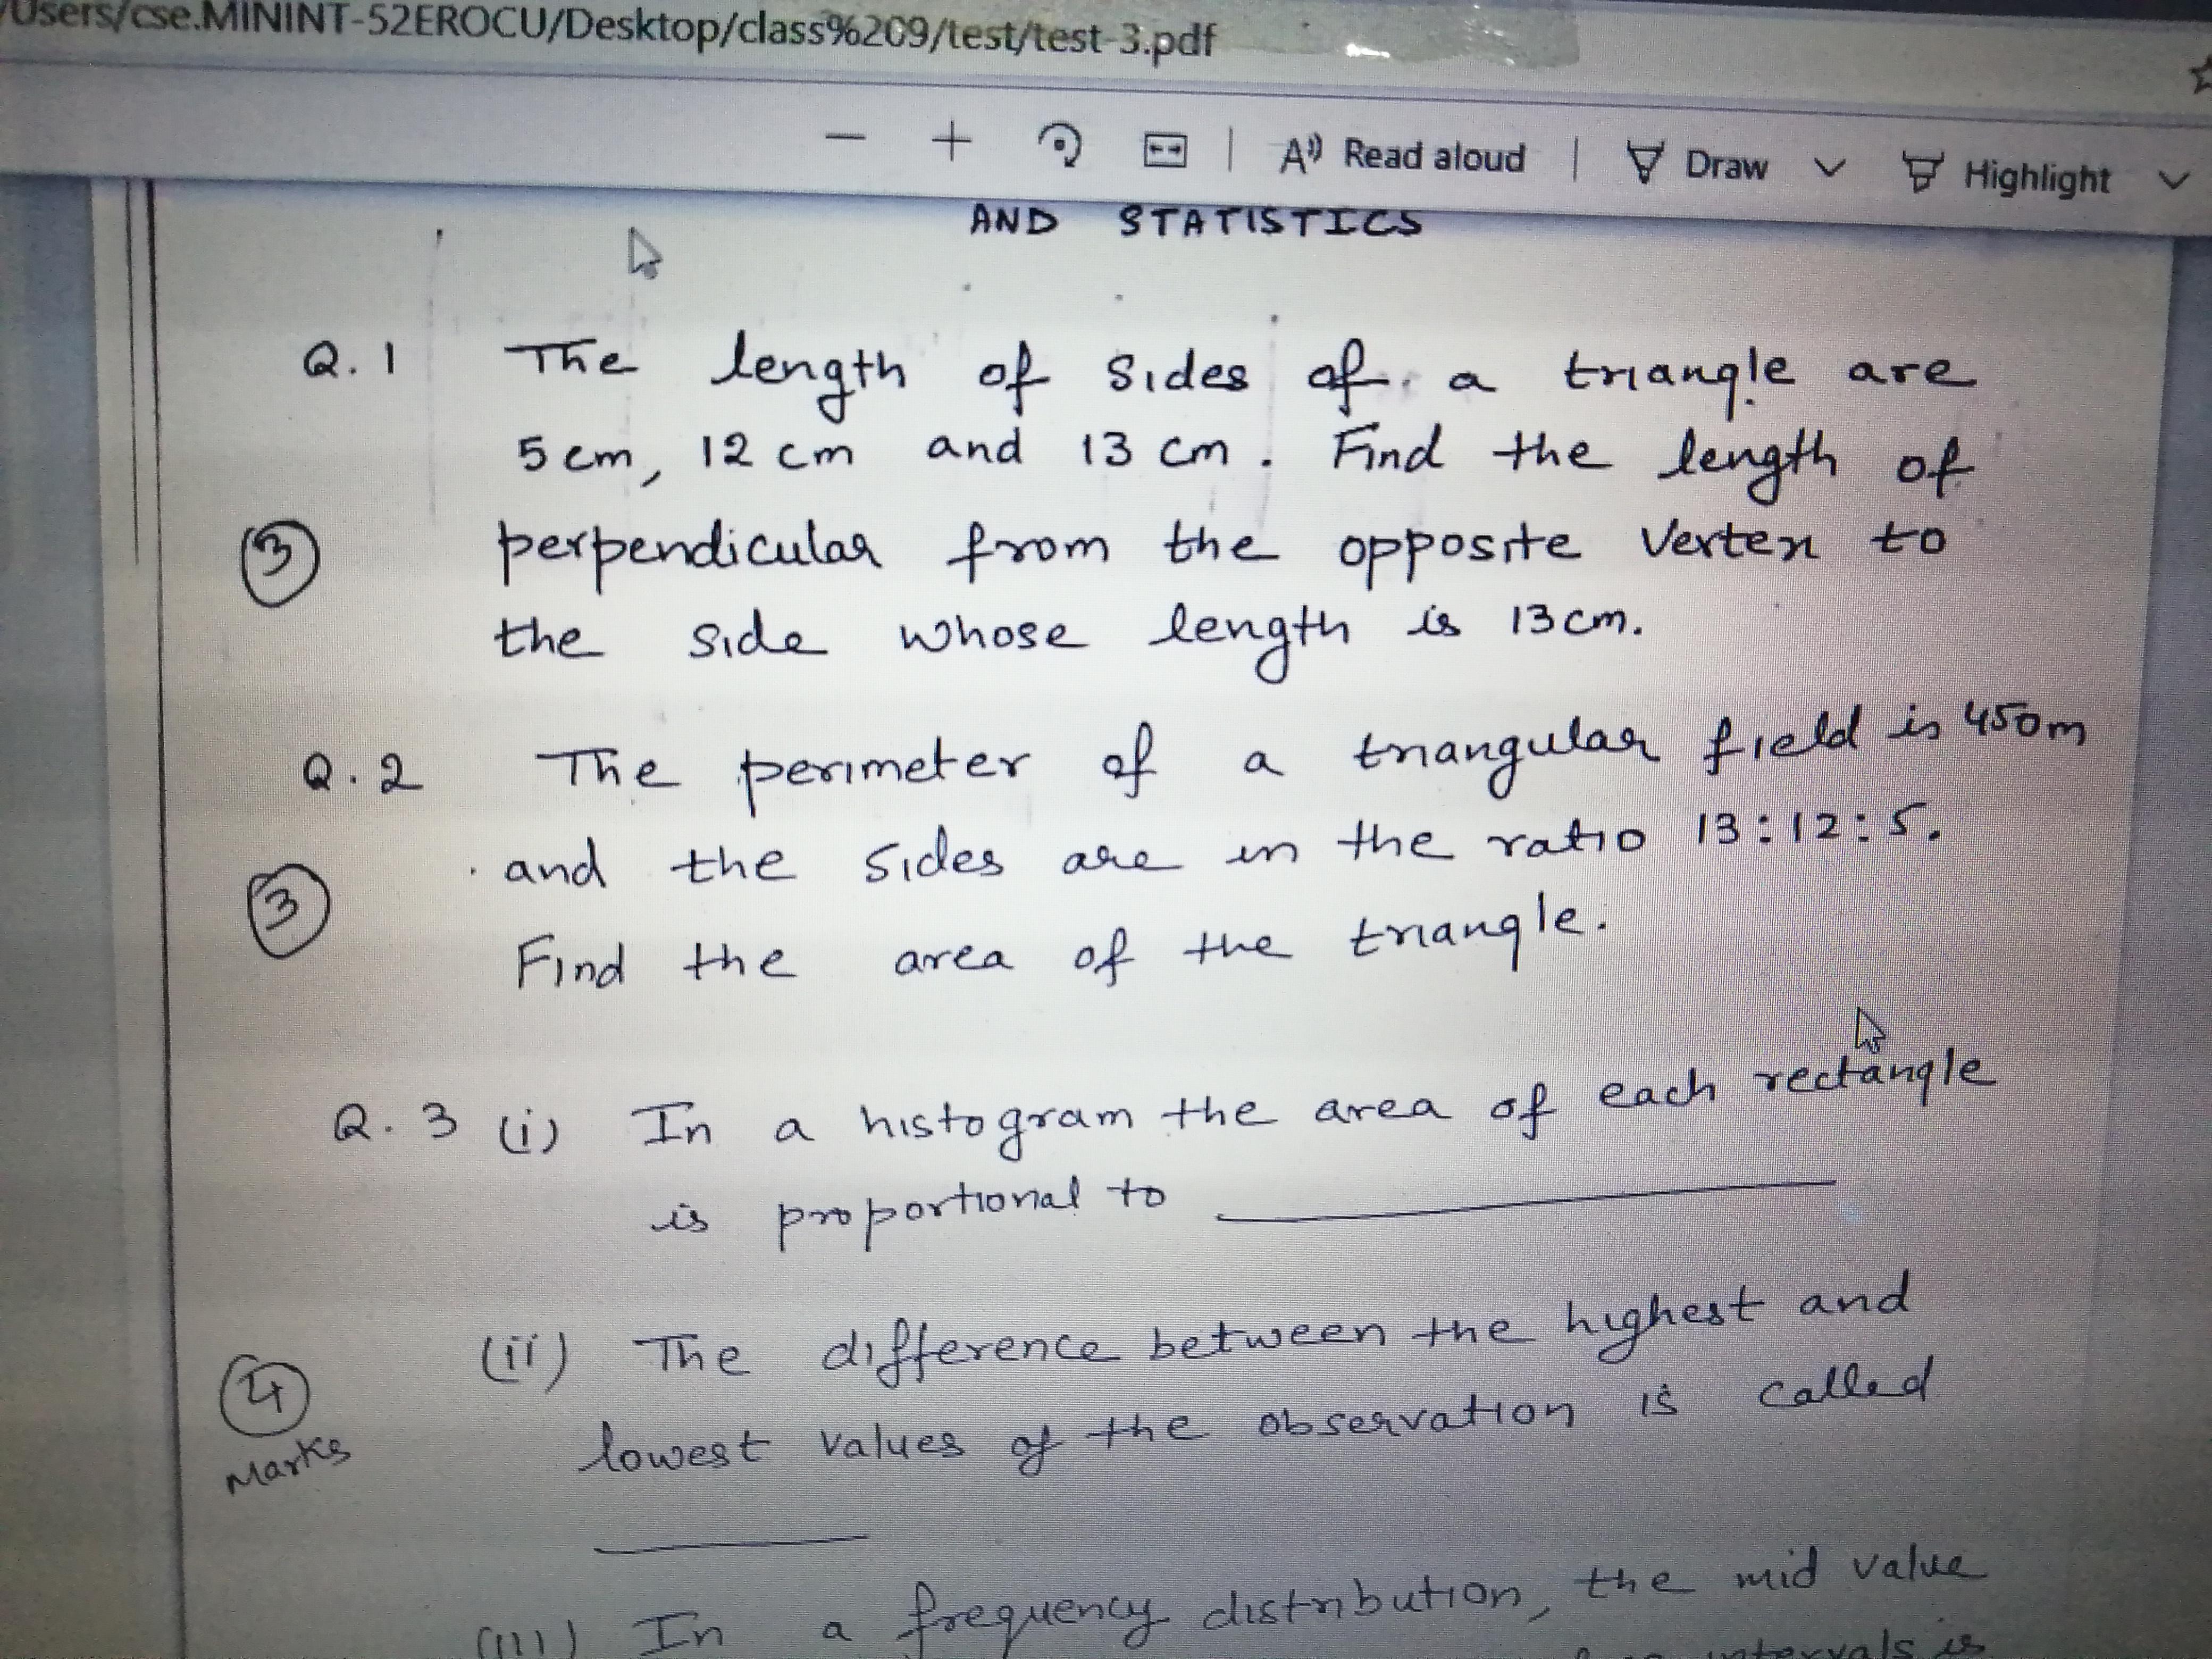 Users/cse.MININT-52EROCU/Desktop/class%209/test/test-3.pdf
Read aloud Draw Highlight
AND STATISTICS
Q.1 The length of sides of a triangle are
5 cm, 12 cm and 13 cm. Find the length of
perpendicular from the opposite vertex to
the side whose length is 13 cm.
3
Q.2 The perimeter of a triangular field is 450m
and the sides are in the ratio 13:12:5.
Find the area of the triangle.
3
Q.3 (i) In a histogram the area of each rectangle
is proportional to
(ii) The difference between the highest and
lowest values of the observation is called
4
Marks
(iii) In a frequency distribution, the mid value
intervals is